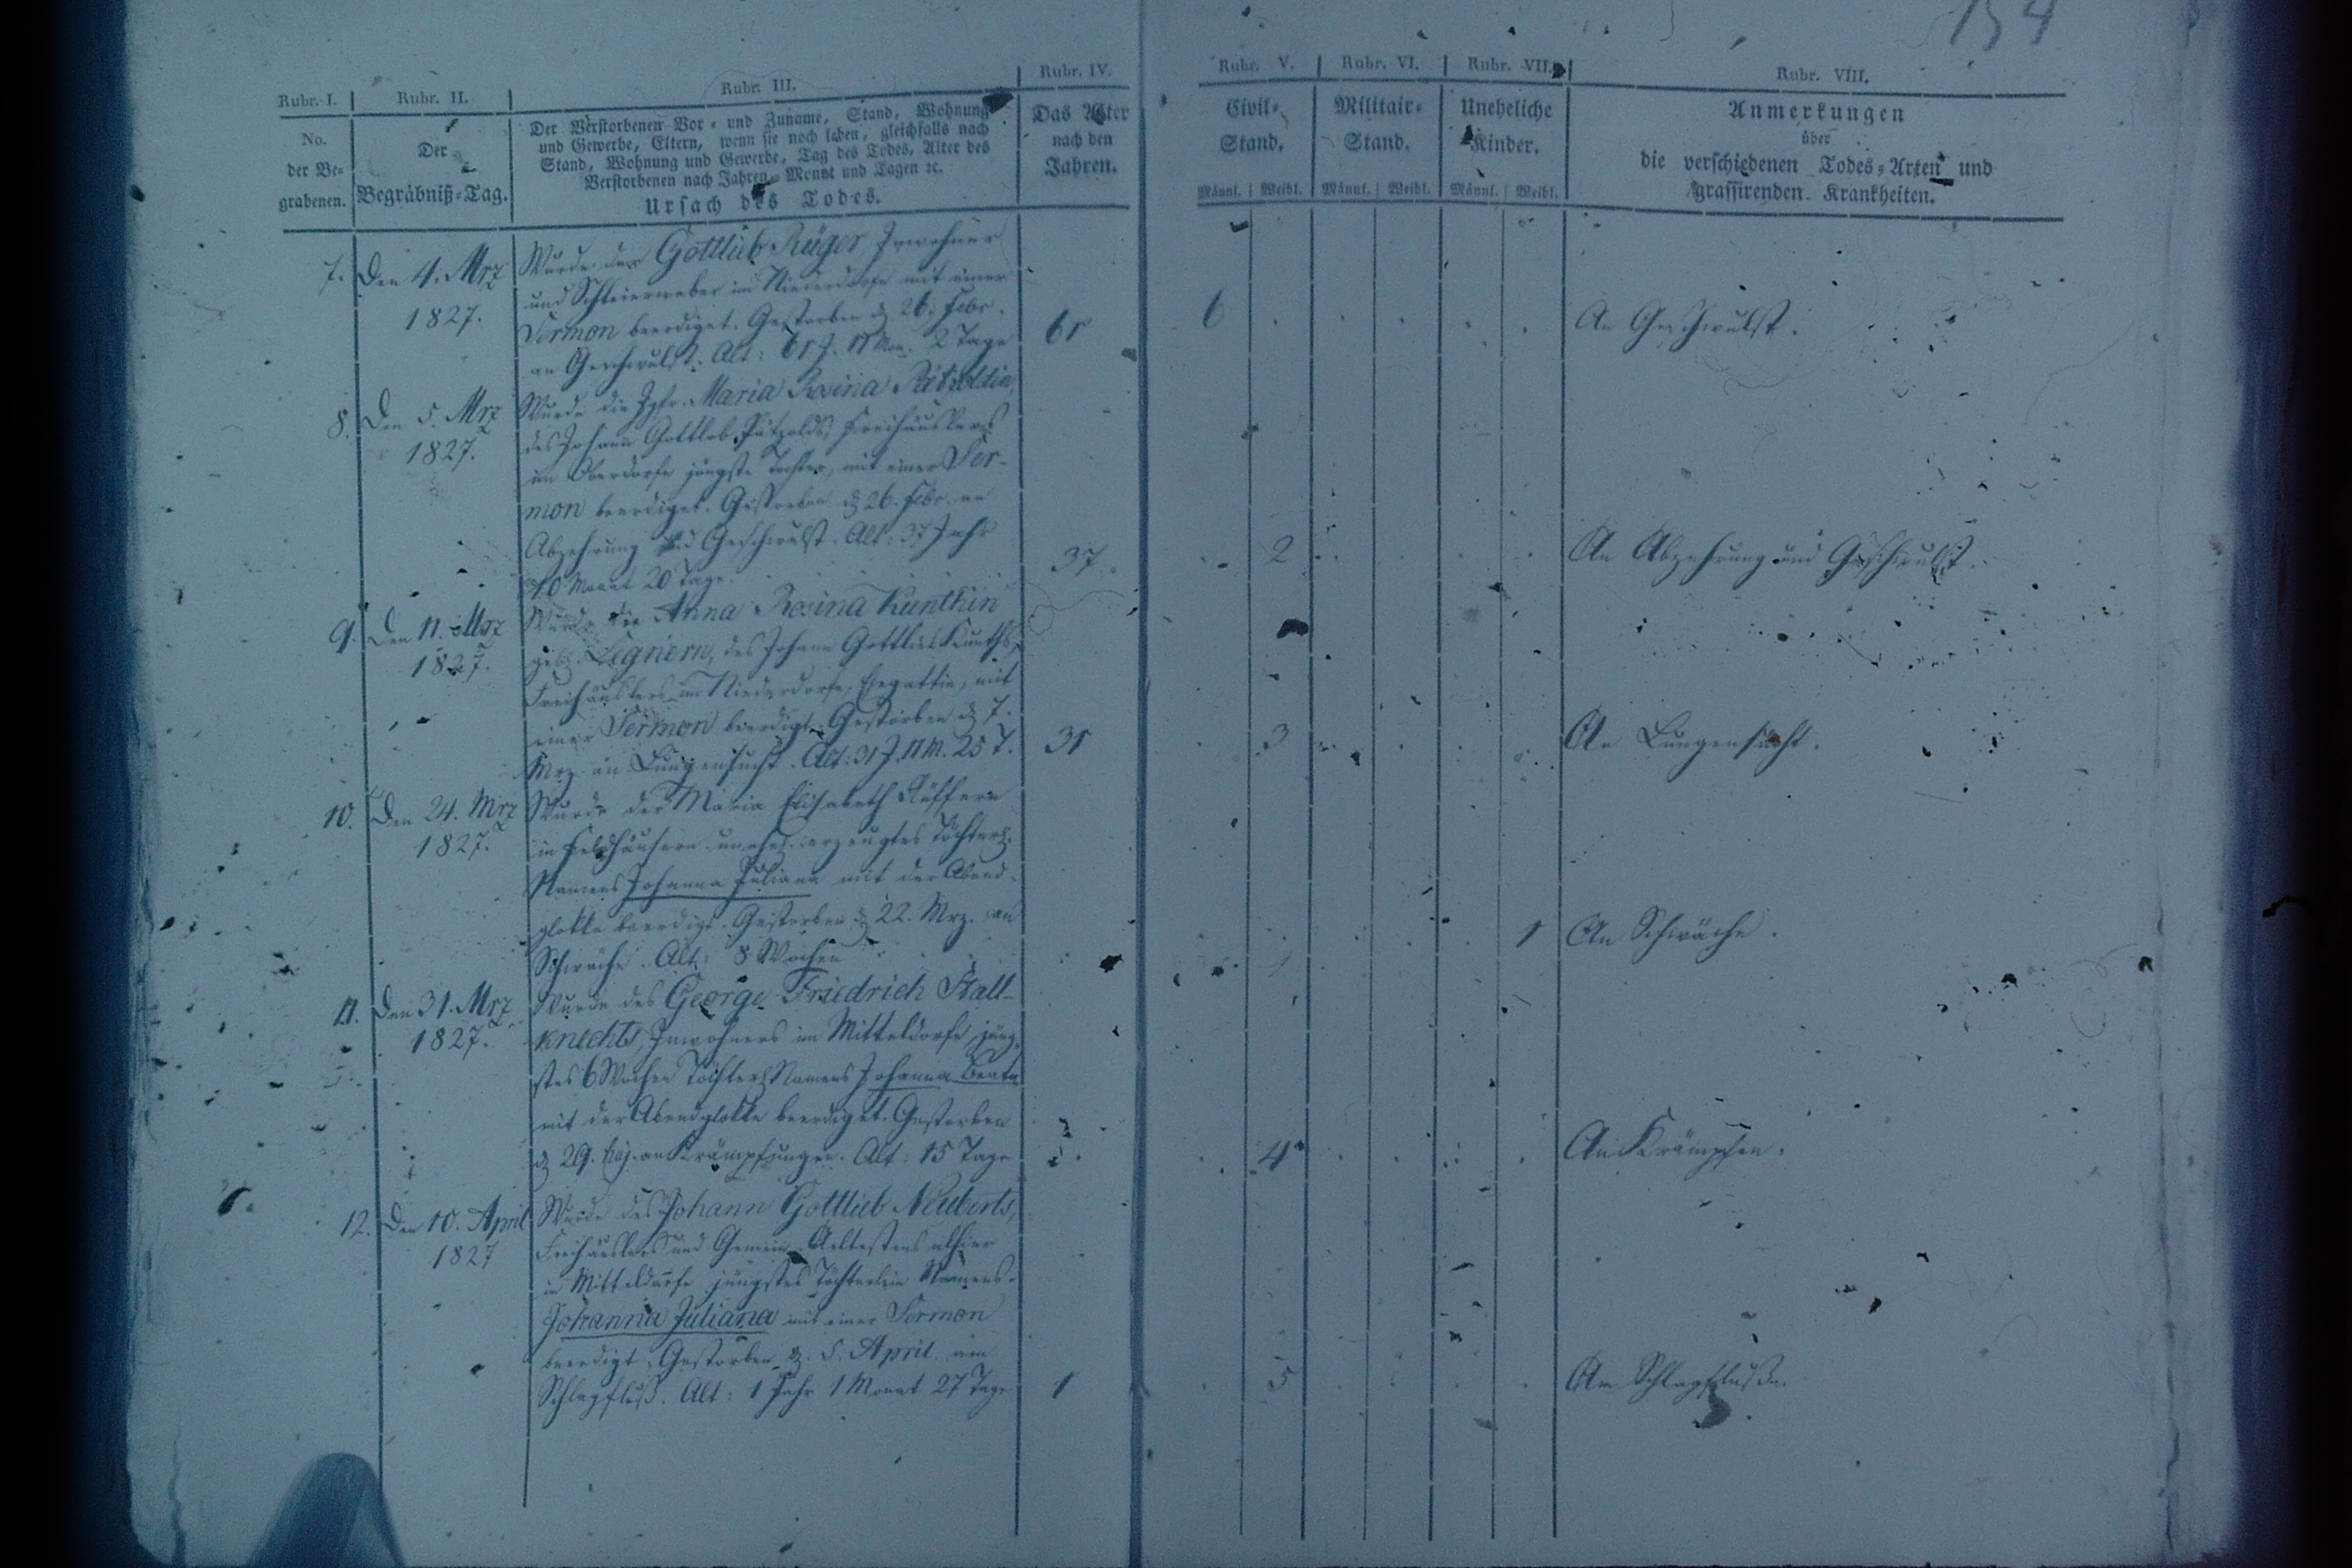 154
Rubr. I.
Rubr. II.
Rubr. III.
Rubr. IV.
Rubr. V.
Rubr. VI.
Rubr. VII.
Rubr. VIII.
No.
der Be-
grabenen.
Der
Begräbniß-Tag.
Der Verstorbenen Vor- und Zuname, Stand, Wohnung
und Gewerbe, Eltern, wenn sie noch leben, gleichfalls nach
Stand, Wohnung und Gewerbe, Tag des Todes, Alter des
Verstorbenen nach Jahren, Monat und Tagen ꝛc.
Ursach des Todes.
Das Alter
nach den
Jahren.
Civil-
Stand.
Männl. Weibl.
Militair-
Stand.
Männl. Weibl.
Uneheliche
Kinder.
Männl. Weibl.
Anmerkungen
über
die verschiedenen Todes-Arten und
grassirenden Krankheiten.
7. Den 4. Mrz
1827.
Wurde der Gottlieb Rüger, Inwohner
und Schleierweber im Niederdorfe mit einer
Sermon beerdiget. Gestorben d. 26. Febr.
an Geschwulst. Alt: 61 J. 11 Mon. 2 Tage
61
6
An Geschwulst.
8. Den 5. Mrz
1827.
Wurde die Jgfr. Maria Rosina
des Johann Gottlob Pätzolds, Freihäuslers
im Oberdorfe jüngste Tochter, mit einer Ser-
mon beerdiget. Gestorben d. 26. Febr. an
Abzehrung und Geschwulst. Alt: 37 Jahr
10 Monat 20 Tage.
37.
2
An Abzehrung und Geschwulst.
9. Den 11. Mrz
1827.
Wurde die Anna Rosina Kunthin
geb. Legnern, des Johann Gottlieb Kunths,
Freihäuslers im Niederdorfe, Ehegattin, mit
einer Sermon beerdigt. Gestorben d. 7.
Mrz an Lungensucht. Alt: 31 J. 11 M. 25 T.
31
3
An Lungensucht.
10. Den 24. Mrz
1827.
Wurde der Maria Elisabeth
in Feldhäusern unehel. erzeugtes Töchterl.
Namens Johanna Juliana mit der Abend-
glokke beerdigt. Gestorben d. 22. Mrz. an
Schwäche. Alt: 8 Wochen
1
An Schwäche.
11. Den 31. Mrz
1827.
Wurde des George Friedrich Stall-
knechts, Inwohners im Mitteldorfe, jüng-
stes 6 Wochen Töchterl. Namens Johanna Beata
mit der Abendglokke beerdiget. Gestorben
d. 29. huj. an Krämpfungen. Alt: 15 Tage
4
An Krämpfen.
12. Den 10. April
1827
Wurde des Johann Gottlieb Neuberts,
Freihäuslers und Gemein-Aeltestens alhier
im Mitteldorfe jüngstes Töchterlein Namens
Johanna Juliana mit einer Sermon
beerdigt. Gestorben d. 5. April am
Schlagfluß. Alt: 1 Jahr 1 Monat 27 Tage
1
5
Am Schlagflusse.